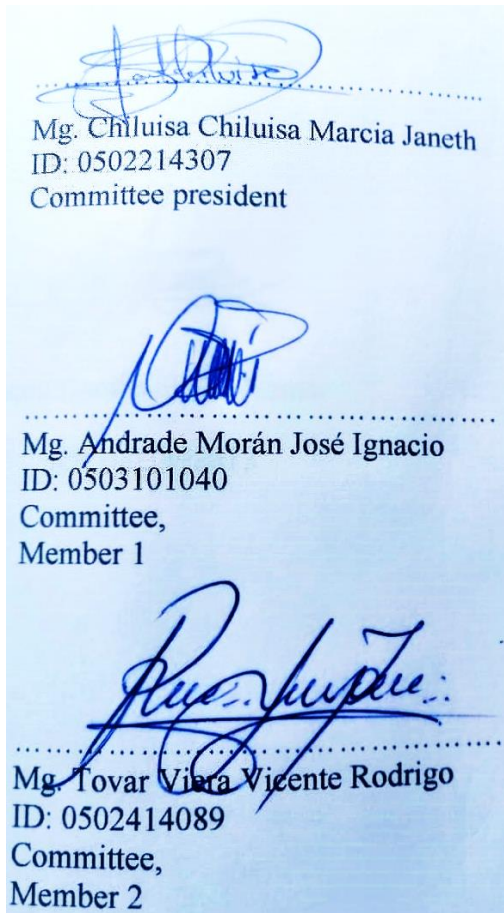 Mg. Chiluisa Chiluisa Marcia Janeth
ID: 0502214307
Committee president
Mg. Andrade Morán José Ignacio
ID: 0503101040
Committee,
Member 1
Mg. Tovar Viera Vicente Rodrigo
ID: 0502414089
Committee,
Member 2